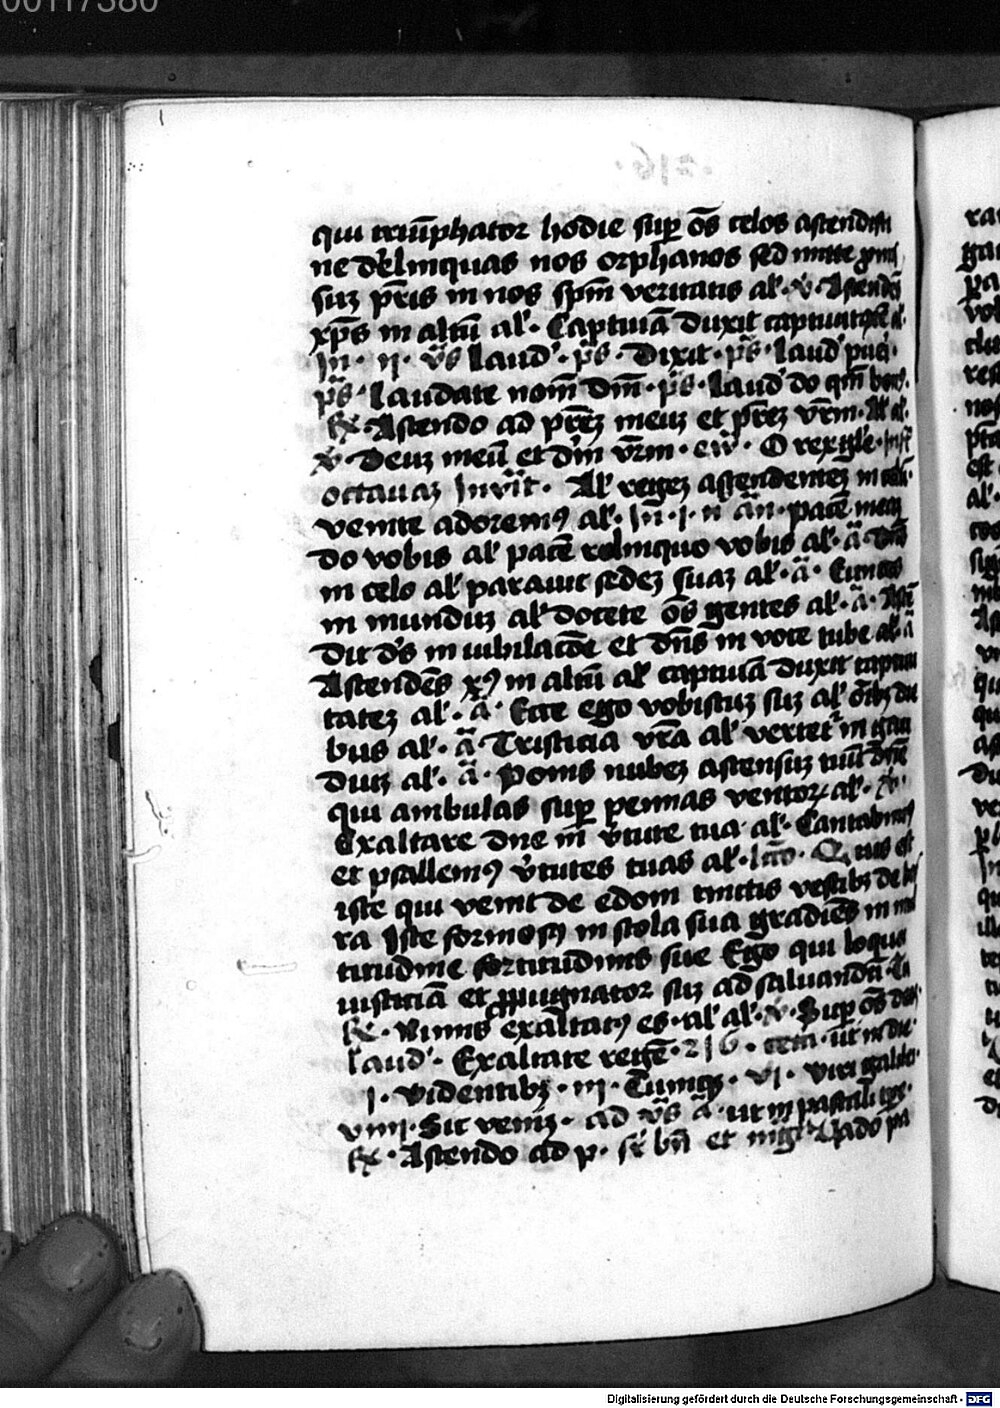 00117380
qui triu̅phator hodie sup os̅ celos ascendisti
ne derelinquas nos orphanos sed mitte
suz pr̅is in nos spm̅ veritatis al᷑ · v̾ · Ascende̅s
xp̅s in altu̅ al᷑ · Captiua̅ duxit captiuitate̅ al᷑
In · ii · vs̅ laud᷑ · ps̅ · Dixit · ps̅ · laud᷑ pueri
ps̅ · laudate nom̅ dm̅ · ps̅ · laud᷑ do qm̅ bonus
R̷ · Ascendo ad pre̅z meuz et pre̅z vr̅m · Al᷑ al᷑
v̾ · Deuz meu̅ et dm̅ vr̅m · ew̅ · O rex gle̅ · Inf᷑
octauaz Invit̅ · Al᷑ regez ascendentez in celu̅
venite adorem9 al᷑ · In̅ · i · n̅ an̅ · pace̅ meaz
do vobis al᷑ pace̅ relinquo vobis al᷑ · a̅ · Dn̅s
in celo al᷑ parauit sedez suaz al᷑ · a̅ · Euntes
in munduz al᷑ docete os̅ gentes al᷑ · a̅ · Ascen̅
dit ds̅ in iubilac̅de et dn̅s in voce tube al᷑ a̅
Ascende̅s x9 in altu̅ al᷑ captiua̅ duxit captiui
tatez al᷑ · a̅ · Ecce ego vobiscuz suz al᷑ oi̅bz die
bus al᷑ · a̅ · Tristicia vr̅a al᷑ vertet᷑ in gau
diuz al᷑ · a̅ · Ponis nubez ascensuz tuu̅ dn̅e
qui ambulas sup pennas ventoꝝ al᷑ · v̾ ·
Exaltare dn̅e in̅ v̾tute tua al᷑ · Cantabim9
et psallem9 v̾tutes tuas al᷑ · lc̅o · Q̅ius est
iste qui venit de edom tinctis vestibz de bos
ra Iste formos9 in stola sua gradie̅s in mul
titudine fortitudinis sue Ego qui loquor
iusticia̅ et ꝓpugnator suz ad saluandu̅
R̷ · Nimis exaltat9 es · al᷑ al᷑ · v̾ · Sup os̅ deos
laud᷑ · Exaltate rege̅ · 216 · cet̅a · ut in die
I · Videntibz · iii · Cumqz · vi · viri galilei
viiii · Sic veniz · ad vs̅ a̅ · ut in pascali tpe̅
R̷ · Ascendo ad p · sr̅ bn̅ et mg̅t Vado pa
Digitalisierung gefördert durch die Deutsche Forschungsgemeinschaft - DFG